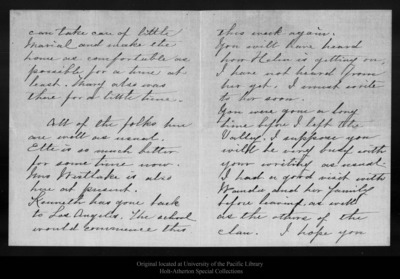 can take care of little
Marial and make the
home as comfortable as
possible for a time at
least. Mary also was
there for a little time.
All of the folks here
are well as usual.
Etta is so much better
for some time now.
Mrs Westlake is also
here at present.
Kenneth has gone back
to Los Angeles. The school
would commence this
this week again.
You will have heard
how Helen is getting on.
I have not heard from
her yet. I must write
to her soon.
You were gone a long
time before I left the
Valley. I suppose you
will be very busy with
your writing as usual.
I had a good visit with
Wanda and her family
before leaving as well
as the others of the
clan. I hope you
Original located at University of the Pacific Library
Holt-Atherton Special Collections